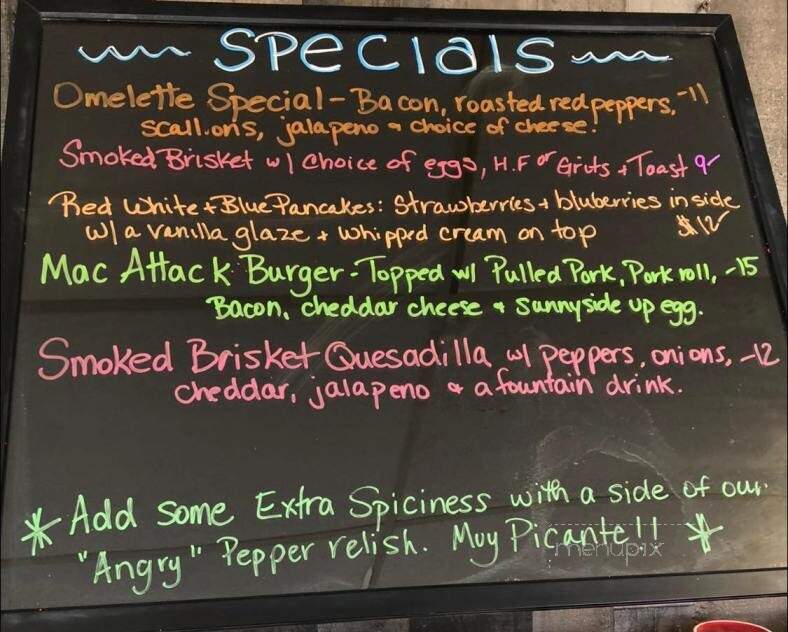 Specials
Omelette Special - Bacon, roasted red peppers, -11
scallions, jalapeno & choice of cheese.
Smoked Brisket w/ Choice of eggs, H.F or Grits + Toast 9-
Red White + Blue Pancakes: Strawberries + bluberries inside
w/ a vanilla glaze + whipped cream on top $12
Mac Attack Burger - Topped w/ Pulled Pork, Pork roll, -15
Bacon, cheddar cheese & sunnyside up egg.
Smoked Brisket Quesadilla w/ peppers, onions, -12
cheddar, jalapeno & a fountain drink.
* Add some Extra Spiciness with a side of our
"Angry" Pepper relish. Muy Picante!! *
menupix